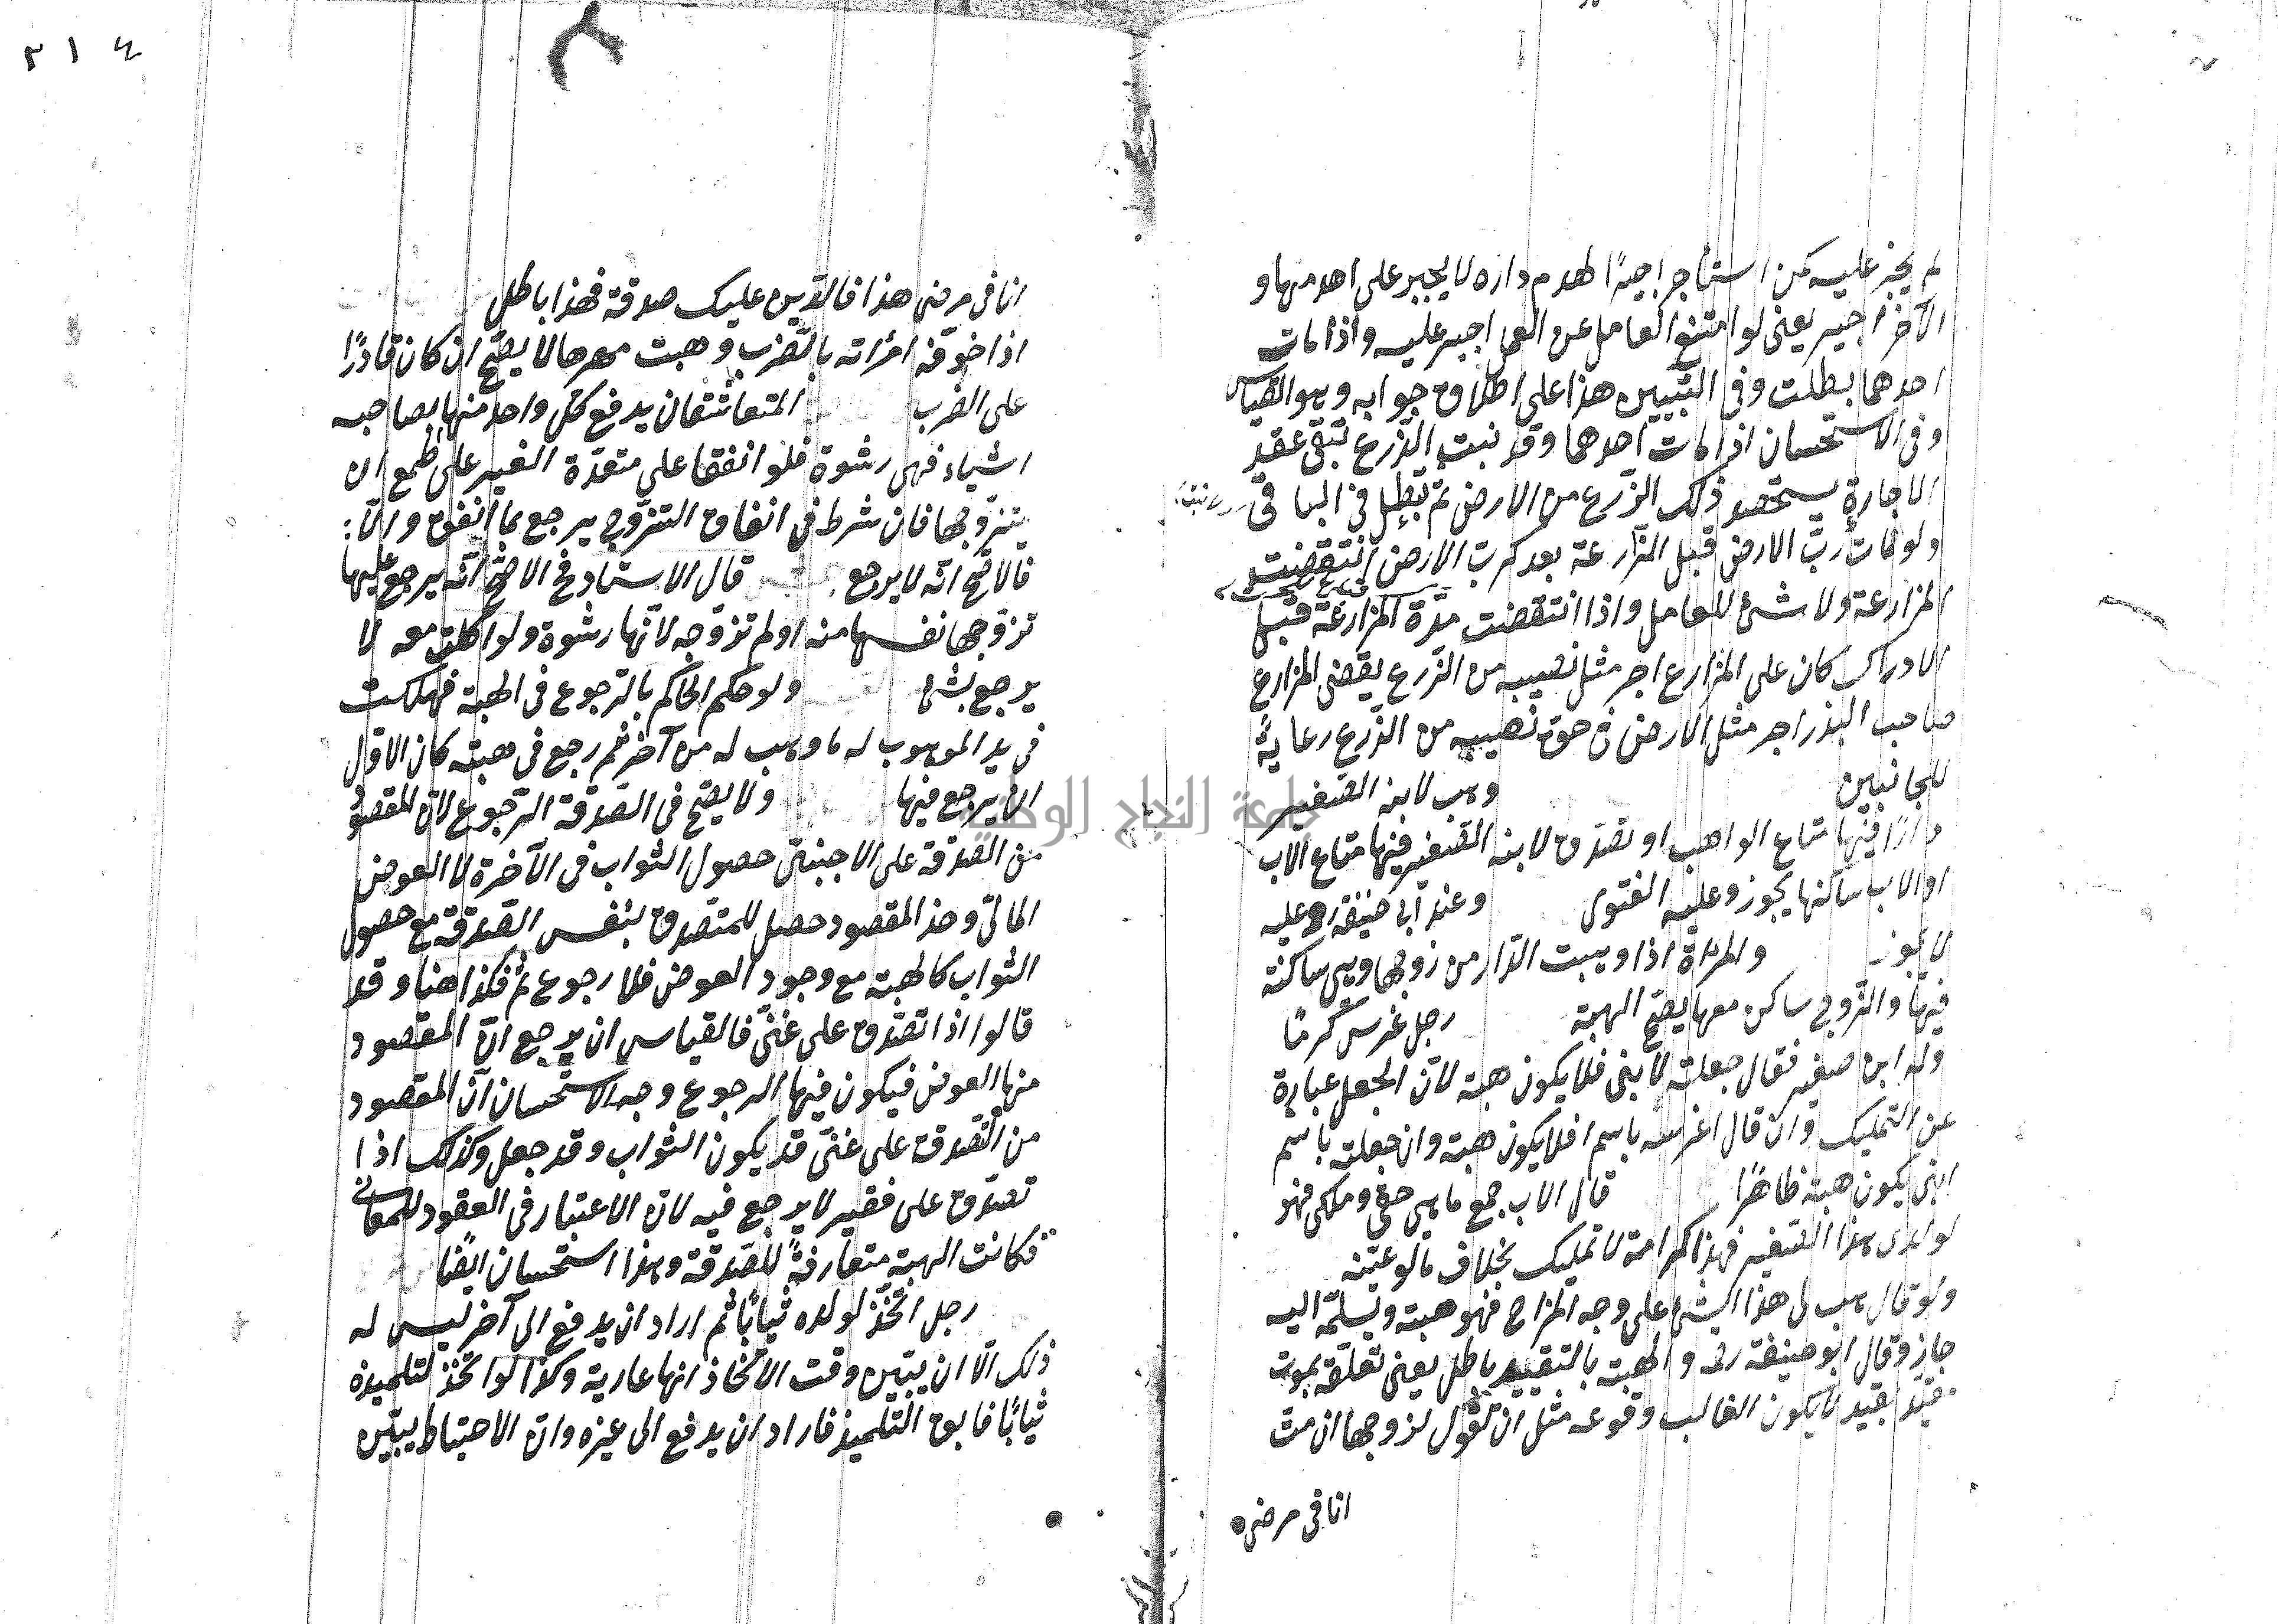 لم يجبر عليه كمن استأجر اجيرًا لهدم داره لا يجبر على احد منها و
الآخر اجير يعنى لو امتنع العامل عن العمل اجبر عليه واذا مات
احدهما بطلت وفى التبيين هذا على اطلاق جوابه وهو القياس
وفى الاستحسان اذا مات احدهما وقد نبت الزّرع تبقى عقد
الاجارة يستحصد ذلك الزّرع من الارض ثم تبطل فى الباقى
ولو مات ربّ الارض قبل المزارعة بعد كرب الارض انتقضت
المزارعة ولا شئ للعامل واذا انتقضت مدّة المزارعة قبل
الادراك كان على المزارع اجر مثل نصيبه من الزّرع يقضى المزارع
صاحب البذر اجر مثل الارض فى حق نصيبه من الزّرع رعايةً
للجانبين وهب لابنه الصّغير
دارًا فيها متاع الواهب او تصدّق لابنه الصّغير فيها متاع الاب
او الاب ساكنها يجوز وعليه الفتوى وعند أبى حنيفة عليه
لا يجوز والمرأة اذا وهبت الدّار من زوجها وهى ساكنة
فيها والزّوج ساكن معها يصحّ الهبة رجل غرس كرمًا
وله ابن صغير فقال جعلته لابنى فلا يكون هبة لانّ الجعل عبارة
عن التمليك وان قال اغرسه باسم افلا يكون هبة وان جعلته باسم
ابنى يكون هبة ظاهرًا قال الاب جمع ما هى حقى وملكى فهو
لولدى هذا الصّغير فهذا كرامة لا تمليك بخلاف ما لو عيّنه
ولو قال هب لى هذا الشئ على وجه المزاح فهو هبة ويسلّمه اليه
جاز وقال ابو حنيفة رحـ والهبة بالتقييد باطل يعنى تعلّقه بموت
مقيّد بقيد ما يكون الغالب وقوعه مثل ان تقول لزوجها ان متّ
انا فى مرضى
٢١٤
انا فى مرضى هذا فالدّين عليك صدقة فهذا باطل
اذا خوّفه امرأته بالضّرب وهبت مهرها لا يصحّ ان كان قادرًا
على الضرب المتعاشقان يدفع كلّ واحد منها لصاحبه
اشياء فهى رشوة فلو انفقا على معتدّة الغير على طمع ان
يتزوجها فان شرط فى انفاق التزوّج يرجع بما انفق والاّ
فالاصحّ انّه لا يرجع قال الاستاد فخ الاصحّ انّه يرجع عليها
تزوّجها نفسها منه او لم تزوّجه لانّها رشوة ولو اكلت معه لا
يرجع بشئ ولو حكم الحاكم بالرّجوع فى الهبة فهلكت
فى يد الموهوب له ما وهب له من آخر ثم رجع فى هبته كان الاوّل
ان يرجع فيها ولا يصحّ فى الصّدقة الرّجوع لانّ المقصود
من الصّدقة على الاجنبىّ حصول الثواب فى الآخرة لا العوض
المالىّ وهذ المقصود حصل للمتصّدق بنفس الصّدقة مع حصول
الثواب كالهبة مع وجود العوض فلا رجوع ثم فكذا هنا وقد
قالوا اذا تصّدق على غنىّ فالقياس ان يرجع انّ المقصود
منها العوض فيكون فيها الرجوع وجه الاستحسان انّ المقصود
من التصّدقة على غنىّ قد يكون الثواب وقد جعل وكذلك اذا
تصدّق على فقير لا يرجع فيه لانّ الاعتبار فى العقود للمعانى
فكانت الهبة متعارفةً للصّدقة وهذا استحسان ايضًا
رجل اتّخذ لولده ثيابًا ثم اراد ان يدفع الى آخر ليس له
ذلك الاّ ان يبيّن وقت الاتّخاذ انها عارية وكذا لو اتّخذ لتلميذه
ثيابًا فابق التلميذ فاراد ان يدفع الى غيره وانّ الاحتياط يبيّن
جامعة النجاح الوطنية